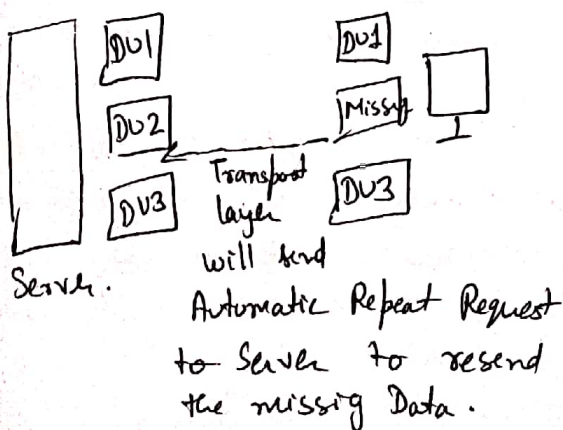 DU1 DU1
DU2 Missig
DU3 DU3
Server.
Transport
layer
will send
Automatic Repeat Request
to Server to resend
the missig Data.